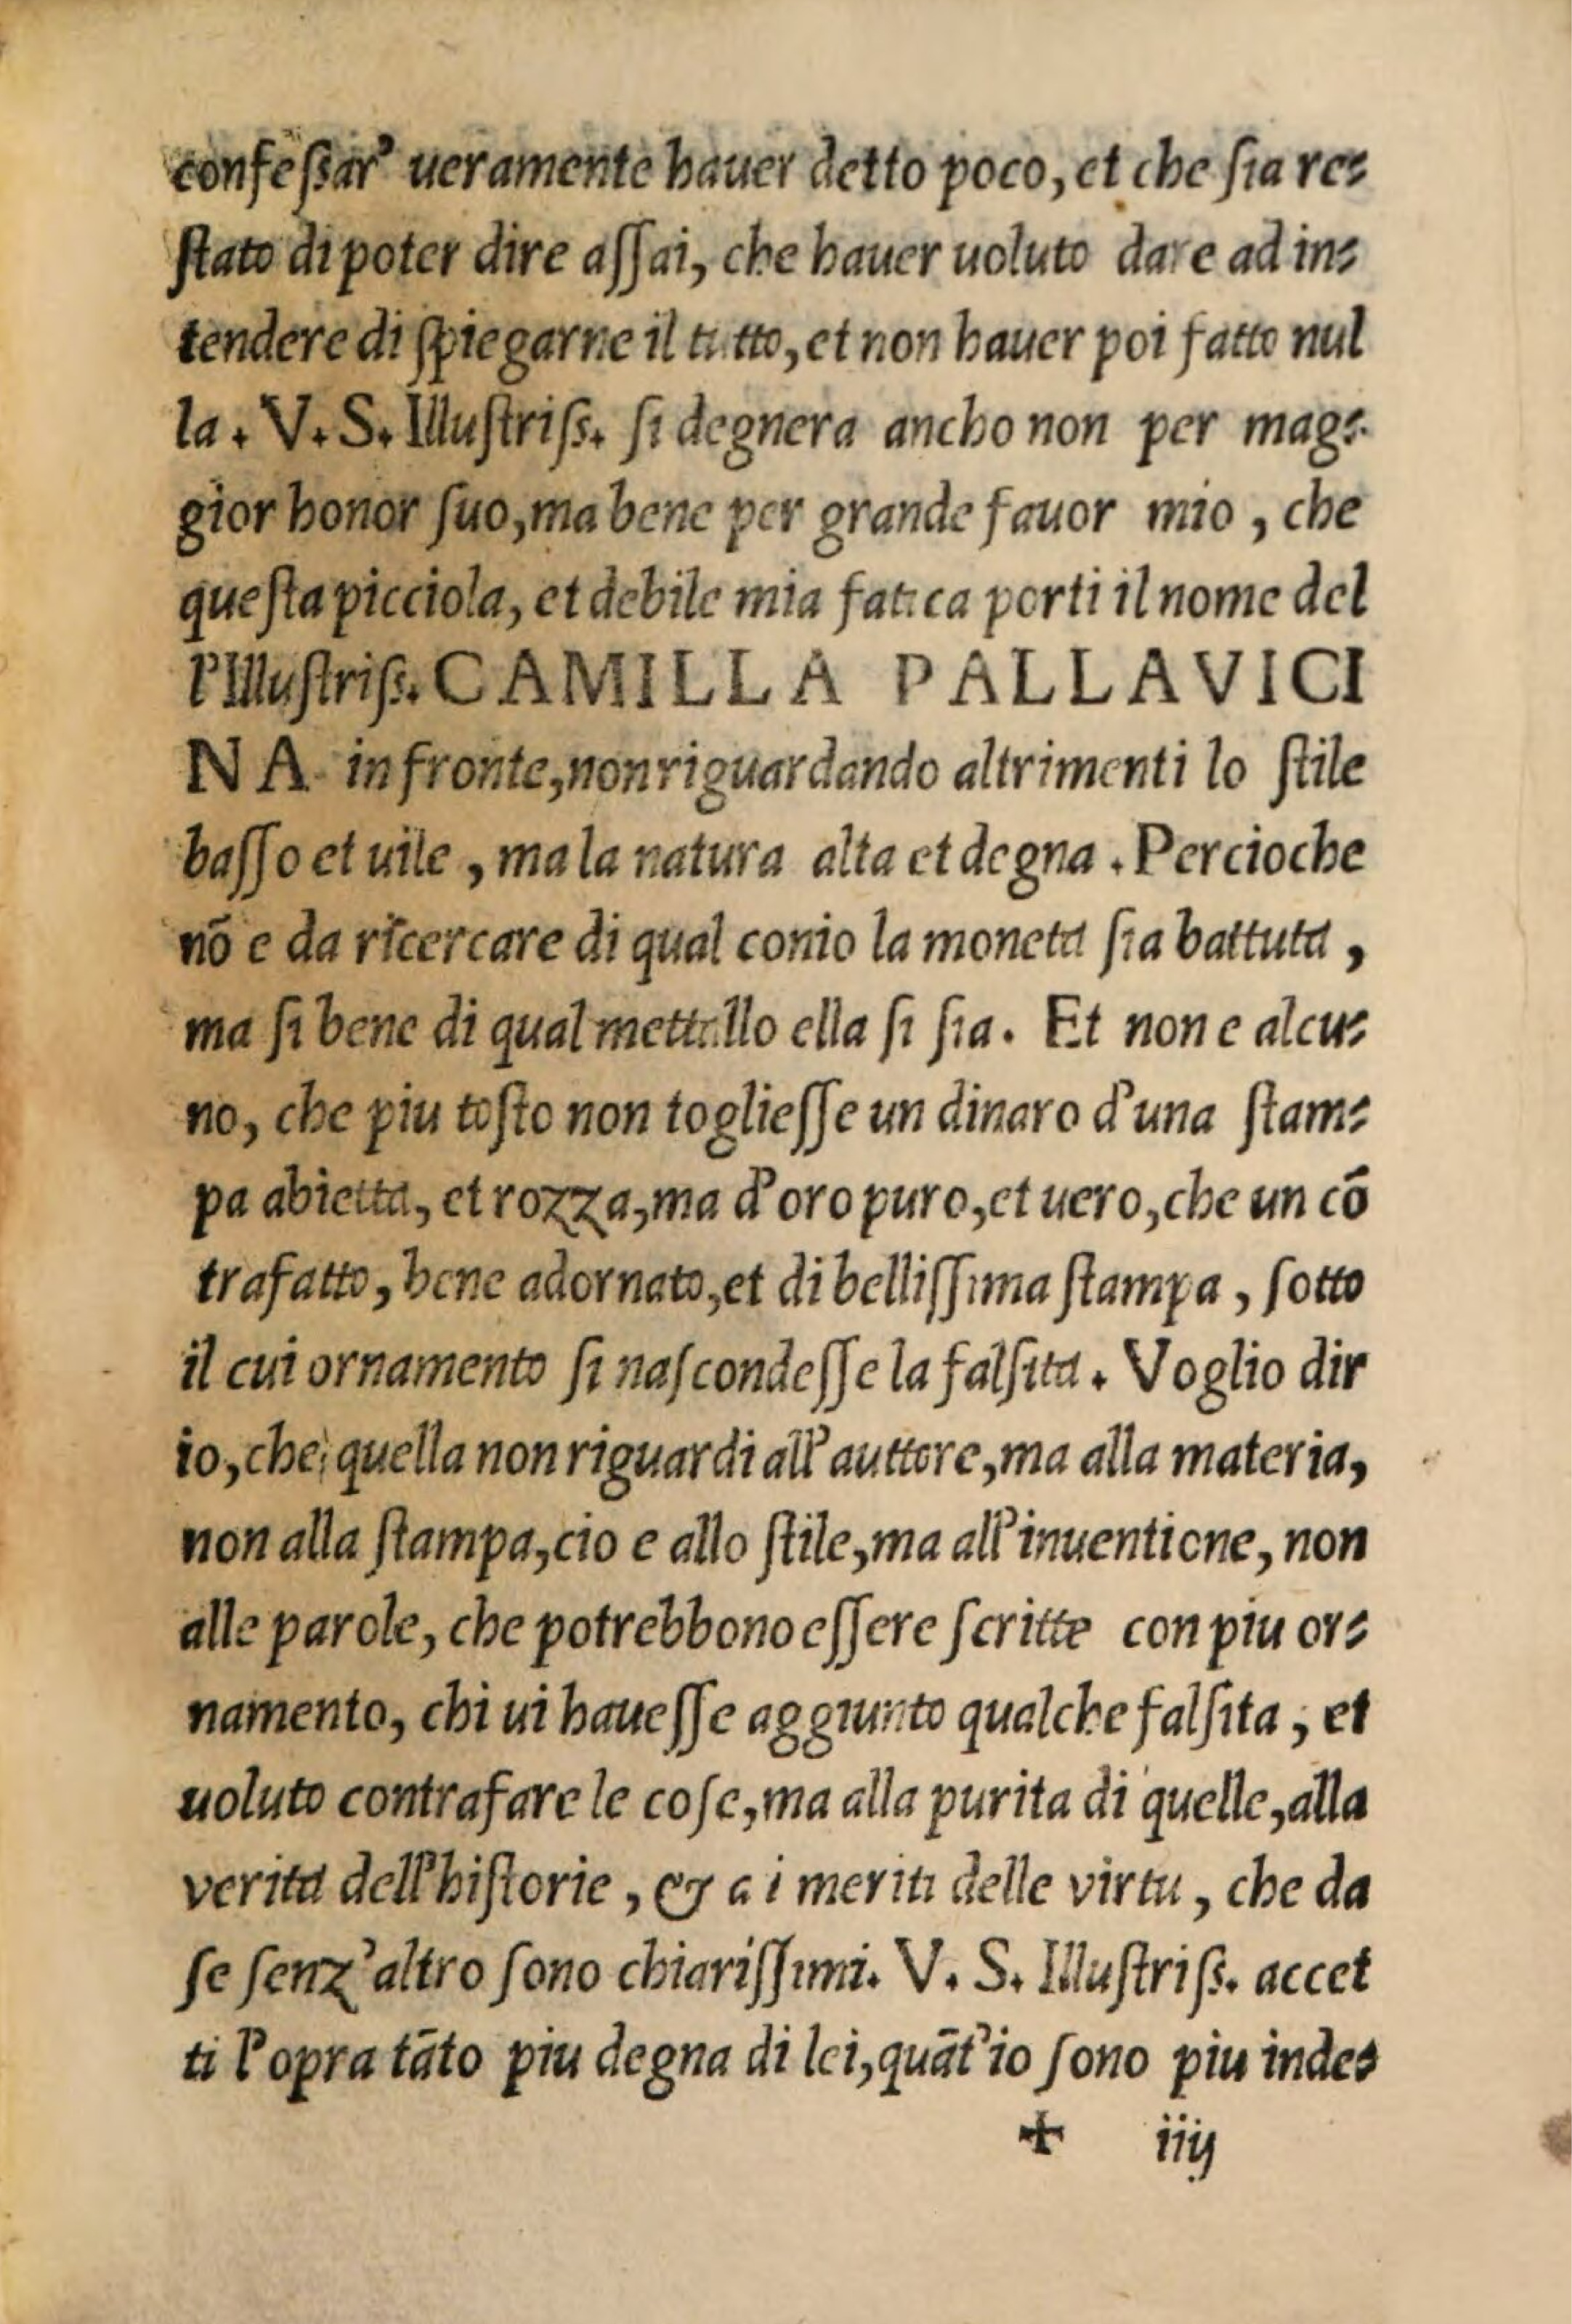 confeſſar’ ueramente hauer detto poco, et che ſia re⸗
ſtato di poter dire aſſai, che hauer uoluto dare ad in⸗
tendere di ſpiegarne il tutto, et non hauer poi fatto nul
la. V. S. Illuſtriſs. ſi degnera ancho non per mag⸗
gior honor ſuo, ma bene per grande fauor mio, che
queſta picciola, et debile mia fatica porti il nome del
l’Illuſtriſs. CAMILLA PALLAVICI
NA in fronte, non riguardando altrimenti lo ſtile
baſſo et uile, ma la natura alta et degna. Percioche
nō e da ricercare di qual conio la moneta ſia battuta,
ma ſi bene di qual mettallo ella ſi ſia. Et non e alcu⸗
no, che piu toſto non toglieſſe un dinaro d’una ſtam⸗
pa abietta, et rozza, ma d’oro puro, et uero, che un cō
trafatto, bene adornato, et di belliſſima ſtampa, ſotto
il cui ornamento ſi naſcondeſſe la falſita. Voglio dir
io, che quella non riguardi all’auttore, ma alla materia,
non alla ſtampa, cio e allo ſtile, ma all’inuentione, non
alle parole, che potrebbono eſſere ſcritte con piu or⸗
namento, chi ui haueſſe aggiunto qualche falſita, et
uoluto contrafare le coſe, ma alla purita di quelle, alla
verita dell’hiſtorie, & a i meriti delle virtu, che da
ſe ſenz’altro ſono chiariſſimi. V. S. Illuſtriſs. accet
ti l’opra tāto piu degna di lei, quāt’io ſono piu inde⸗
✠ iiij